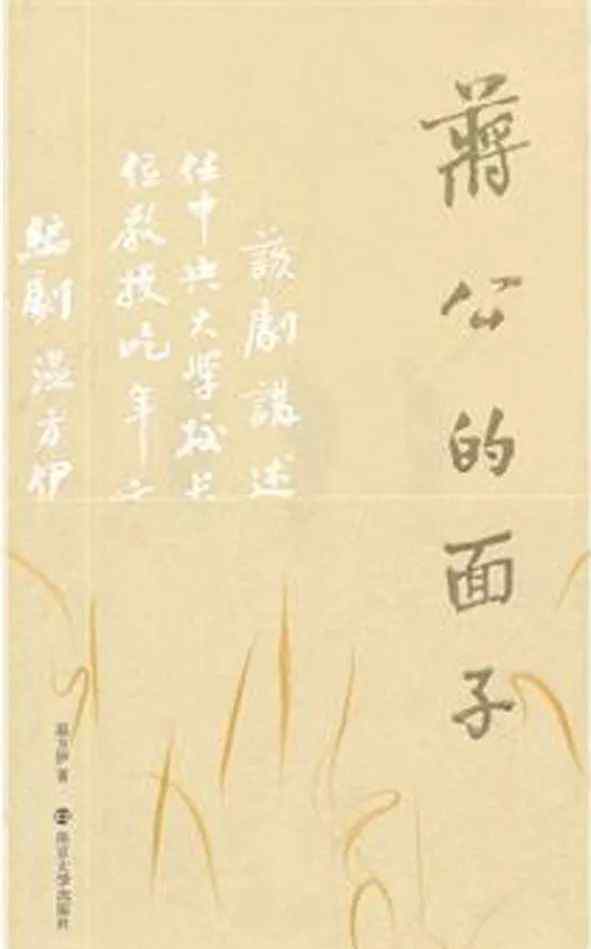 蔣公的面子
該劇講述
任中央大學校长
位教授吃年
編劇 温方伊
温方伊 著
南京大学出版社